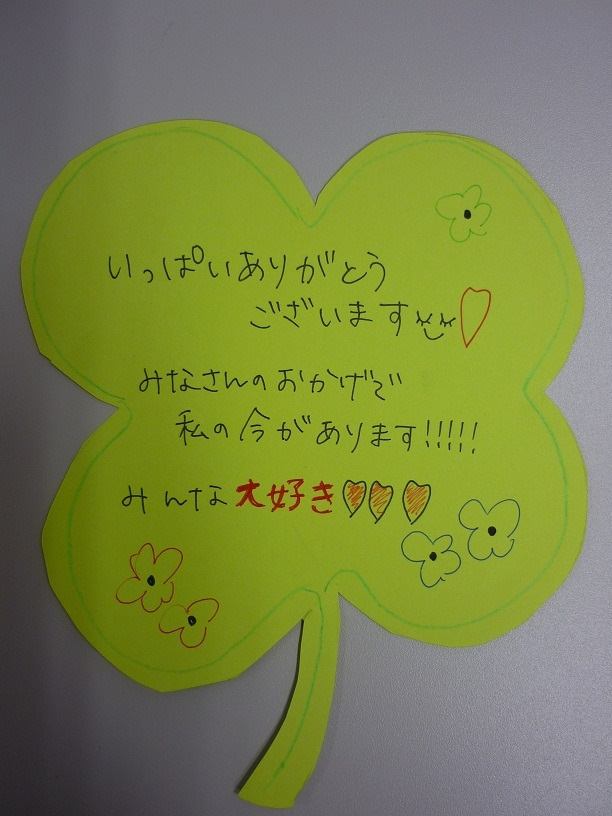 いっぱいありがとう
ございます
みなさんのおかげで
私の今があります!!!!!
みんな大好き